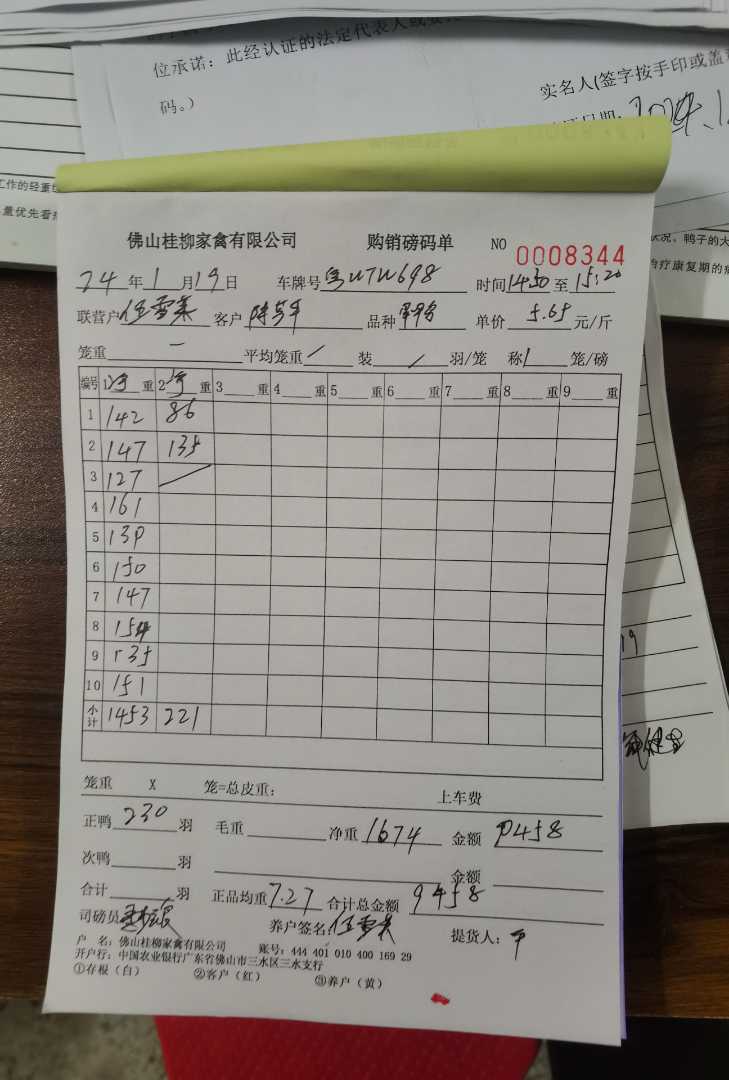 位承诺：此经认证的法定代表人或
码。）
实名人(签字按手印或盖
工作的轻重
量优先看
佛山桂柳家禽有限公司 购销磅码单 NO 0008344
24年1月19日 车牌号粤WTW698 时间14:30至15:20
联营户伍雪 客户陈 品种 单价5.65元/斤
笼重 — 平均笼重 / 装 / 羽/笼 称1 笼/磅
编号 1 重 2 重 3 重 4 重 5 重 6 重 7 重 8 重 9 重
1 142 86
2 147 135
3 127 /
4 161
5 139
6 150
7 147
8 154
9 135
10 151
小计 1453 221
笼重 X 笼=总皮重： 上车费
正鸭230羽 毛重 净重1674 金额9458
次鸭 羽 金额
合计 羽 正品均重7.27 合计总金额9458
司磅员 养户签名伍雪 提货人：
户 名：佛山桂柳家禽有限公司 账号：444 401 010 400 169 29
开户行：中国农业银行广东省佛山市三水区三水支行
①存根（白） ②客户（红） ③养户（黄）
状况、鸭子的大
治疗康复期的病